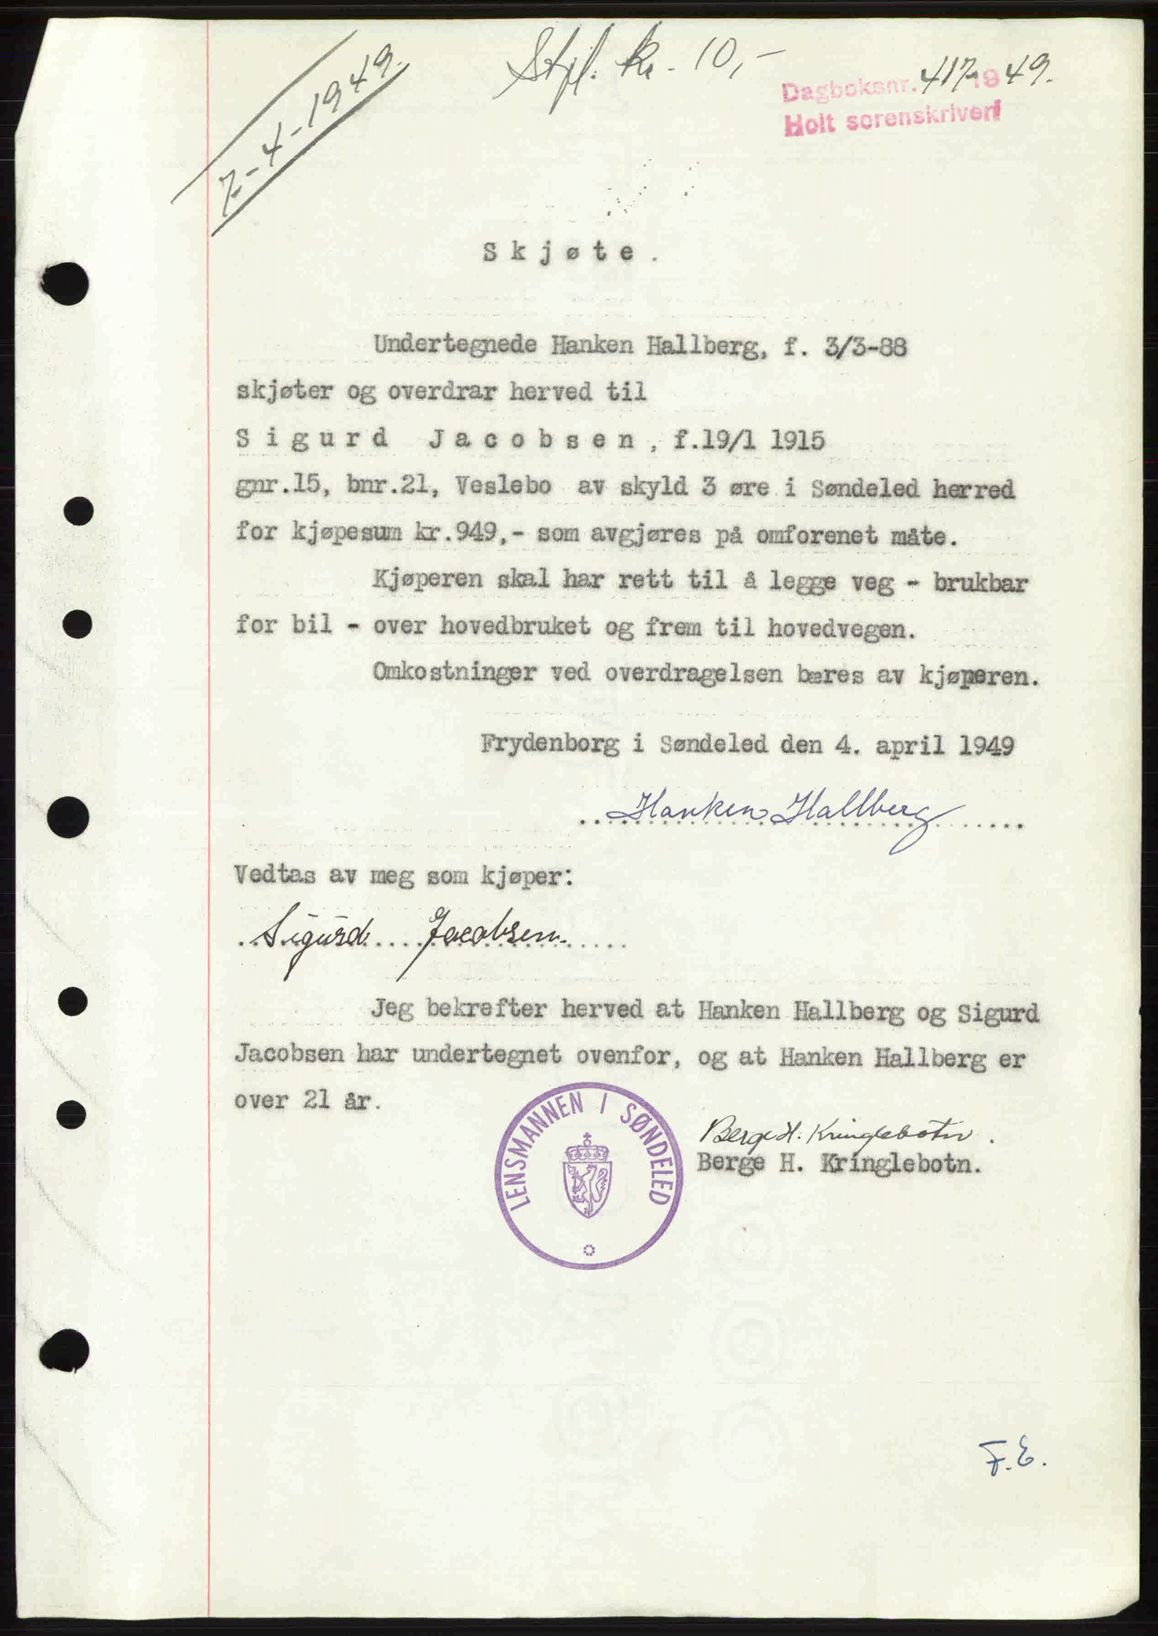 7-4-1949.
Stpl. kr. 10,-
Dagboksnr. 417 19 49.
Holt sorenskriveri
Skjøte.
Undertegnede Hanken Hallberg, f. 3/3-88
skjøter og overdrar herved til
Sigurd Jacobsen, f.19/1 1915
gnr.15, bnr.21, Veslebo av skyld 3 øre i Søndeled herred
for kjøpesum kr.949,- som avgjøres på omforenet måte.
Kjøperen skal har rett til å legge veg - brukbar
for bil - over hovedbruket og frem til hovedvegen.
Omkostninger ved overdragelsen bæres av kjøperen.
Frydenborg i Søndeled den 4. april 1949
Hanken Hallberg
Vedtas av meg som kjøper:
Sigurd Jacobsen
Jeg bekrefter herved at Hanken Hallberg og Sigurd
Jacobsen har undertegnet ovenfor, og at Hanken Hallberg er
over 21 år.
LENSMANNEN I SØNDELED
Berge H. Kringlebotn.
Berge H. Kringlebotn.
F.E.